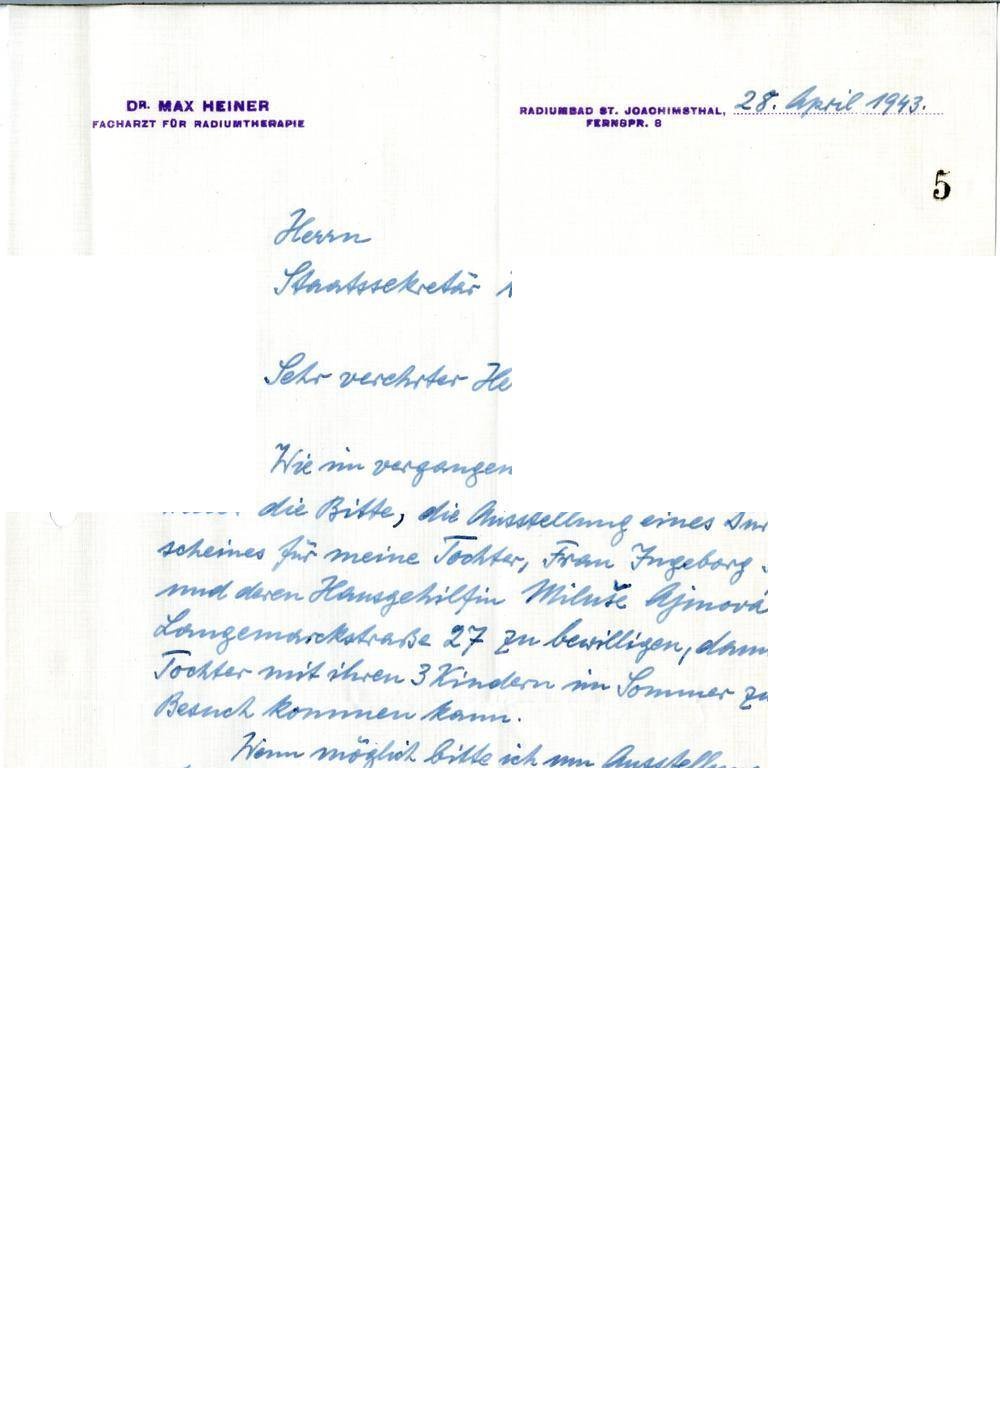 DR. MAX HEINER
FACHARZT FÜR RADIUMTHERAPIE
RADIUMBAD ST. JOACHIMSTHAL, 28. April 1943.
FERNSPR. 8
5
Herrn
Staatssekretär
Sehr verehrter He
Wie im vergangen
die Bitte, die Ausstellung eines Dur
scheines für meine Tochter, Frau Ingeborg
und deren Hausgehilfin Miluše Ajmová
Langemarckstraße 27 zu bewilligen, dam
Tochter mit ihren 3 Kindern im Sommer zu
Besuch kommen kann.
Wenn möglich bitte ich um Ausstell